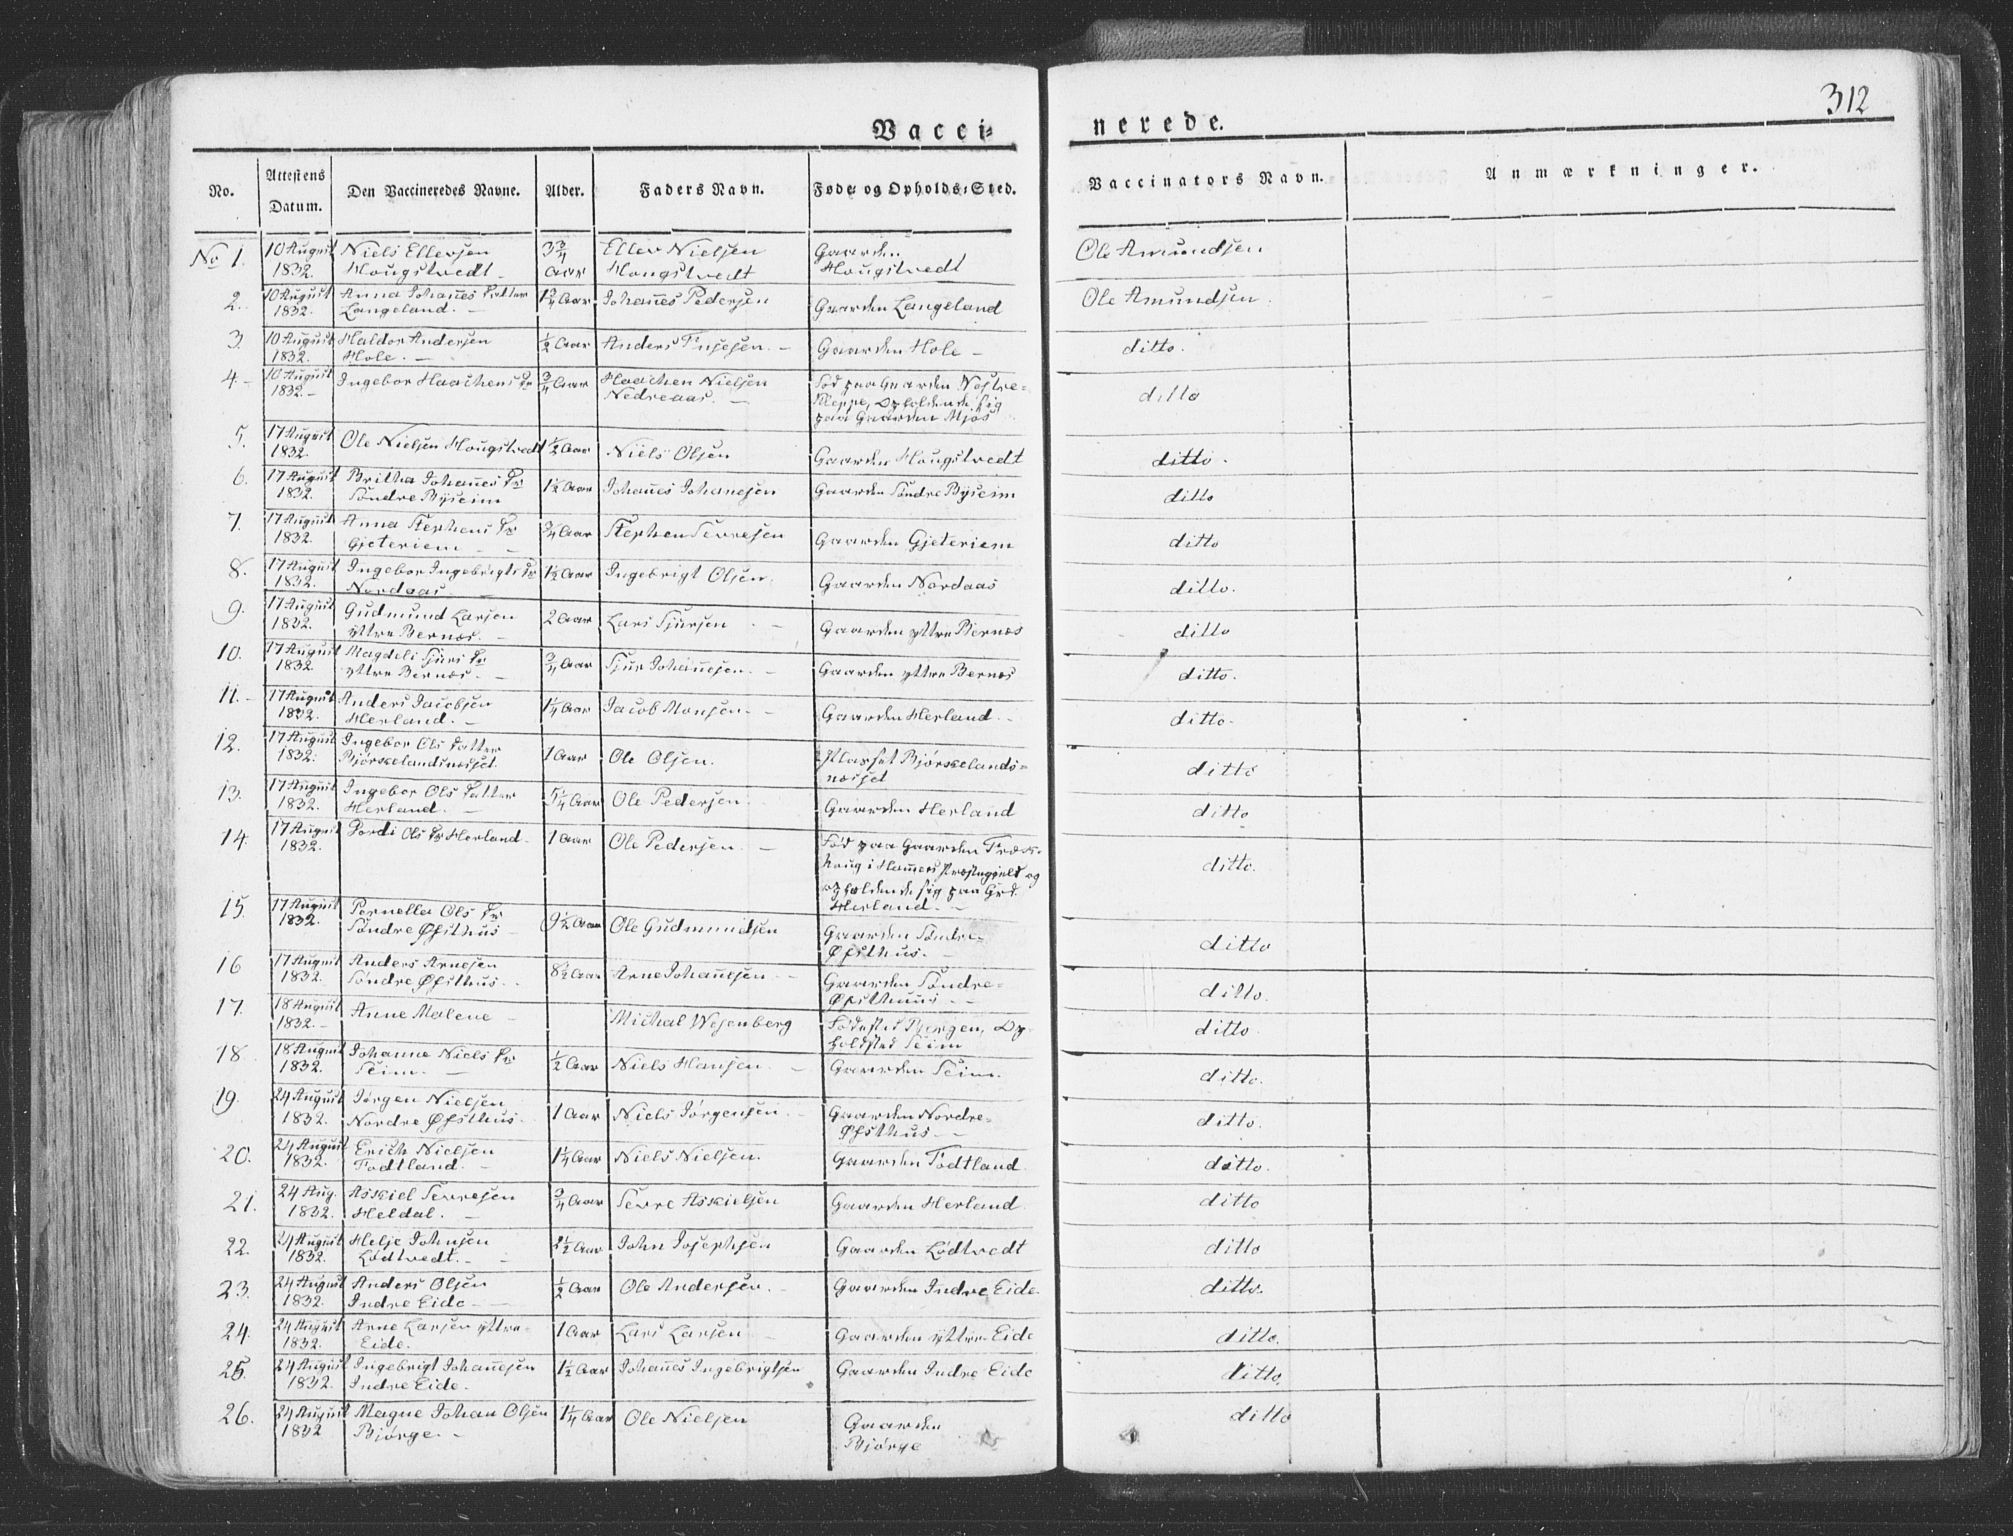 312
Vacci=
nerede.
No. | Attestens Datum. | Den Vaccineredes Navne. | Alder. | Faders Navn. | Føde= og Opholds=Sted. | Vaccinators Navn. | Anmærkninger.
No 1. | 10 August 1832. | Niels Ellersen Hougstvedt | 3 3/4 Aar | Eller Nielsen Hougstvedt | Gaarden Hougstvedt | Ole Amundsen
2. | 10 August 1832. | Anna Johañes Datter Langeland. | Aar | Johañes Pedersen | Gaarden Langeland | Ole Amundsen.
3. | 10 August 1832. | Haldor Andersen Hole. | 1/2 Aar | Anders | Gaarden Hole | ditto.
4. | 10 August 1832. | Ingebor Haachens Dr | 3/4 Aar | Haachen Nielsen Nedreaas. | Fød paa Gaarden Nestre= Kleppe, Opholdende sig paa Gaarden Mjøs | ditto
5. | 17 August 1832. | Ole Nielsen Hougstvedt | 1/2 Aar | Niels Olsen | Gaarden Hougstvedt | ditto.
6. | 17 August 1832. | Britha Johañes Dr Søndre Byseim | 1 1/2 Aar | Johañes Johañesen | Gaarden Søndre Byseim | ditto
7. | 17 August 1832. | Anna Stephens Dr Gjeteriem | 3/4 Aar | Stephen Sevresen | Gaarden Gjeteriem | ditto
8. | 17 August 1832. | Ingebor Ingebrigts Dr Nordaas. | 1 1/2 Aar | Ingebrigt Olsen. | Gaarden Nordaas | ditto.
9. | 17 August 1832. | Gudmund Larsen yttre Bernæs. | 2 Aar | Lars Sjursen | Gaarden yttre Bernæs | ditto
10. | 17 August 1832. | Magdeli Sjurs Dr yttre Bernæs. | 3/4 Aar | Sjur Johañesen. | Gaarden yttre Bernæs | ditto.
11. | 17 August 1832. | Anders Jacobsen Herland. | 1 1/4 Aar | Jacob Monsen. | Gaarden Herland. | ditto.
12. | 17 August 1832. | Ingebor Ols Datter Bjørsælandsnæsset. | 1 Aar | Ole Olsen. | Pladset Bjørsælands= næsset | ditto
13. | 17 August 1832. | Ingebor Ols Datter Herland. | 5 1/4 Aar | Ole Pedersen. | Gaarden Herland | ditto
14. | 17 August 1832. | Gordi Ols Dr Herland. | 1 Aar | Ole Pedersen. | Fød paa Gaarden houg i Hamers Præstegjeld og opholdende sig paa Grd. Herland. | ditto.
15. | 17 August 1832. | Pernella Ols Dr Søndre Øfsthus | 9 1/2 Aar | Ole Gudmundsen | Gaarden Søndre= Øfsthus. | ditto
16 | 17 August 1832. | Anders Arnesen Søndre Øfsthus. | 8 1/2 Aar | Arne Johañesen | Gaarden Søndre= Øfsthuus | ditto.
17. | 18 August 1832. | Anne Malene | Michal Wesenberg | Fødested Bergen, Op= holdsted Seim | ditto.
18 | 18 August 1832. | Johanne Niels Dr Seim. | 1/2 Aar | Niels Hansen. | Gaarden Seim. | ditto.
19. | 24 August 1832. | Jørgen Nielsen Nordre Øfsthus. | 1 Aar | Niels Jørgensen. | Gaarden Nordre= Øfsthus | ditto.
20. | 24 August 1832. | Erich Nielsen Fodtland. | 1 1/4 Aar | Niels Nielsen. | Gaarden Fodtland | ditto.
21. | 24 Aug. 1832. | Askiel Sevresen Heldal. | 3/4 Aar | Sevre Askielsen | Gaarden Herland | ditto
22. | 24 August 1832. | Helje Johnsen Lødtvedt. | 1 1/2 Aar | John Josephsen | Gaarden Lødtvedt | ditto
23. | 24 August 1832. | Anders Olsen Indre Eide | 1/2 Aar | Ole Andersen. | Gaarden Indre Eide. | ditto.
24. | 24 August 1832. | Arne Larsen yttre= Eide. | 1 Aar | Lars Larsen | Gaarden yttre Eide | ditto.
25. | 24 August 1832. | Ingebrigt Johañesen Indre Eide. | 1 1/2 Aar | Johañes Ingebrigtsen | Gaarden Indre Eide | ditto.
26. | 24 August 1832 | Magne Johan Olsen Bjørge. | 1 1/4 Aar | Ole Nielsen | Gaarden Bjørge | ditto